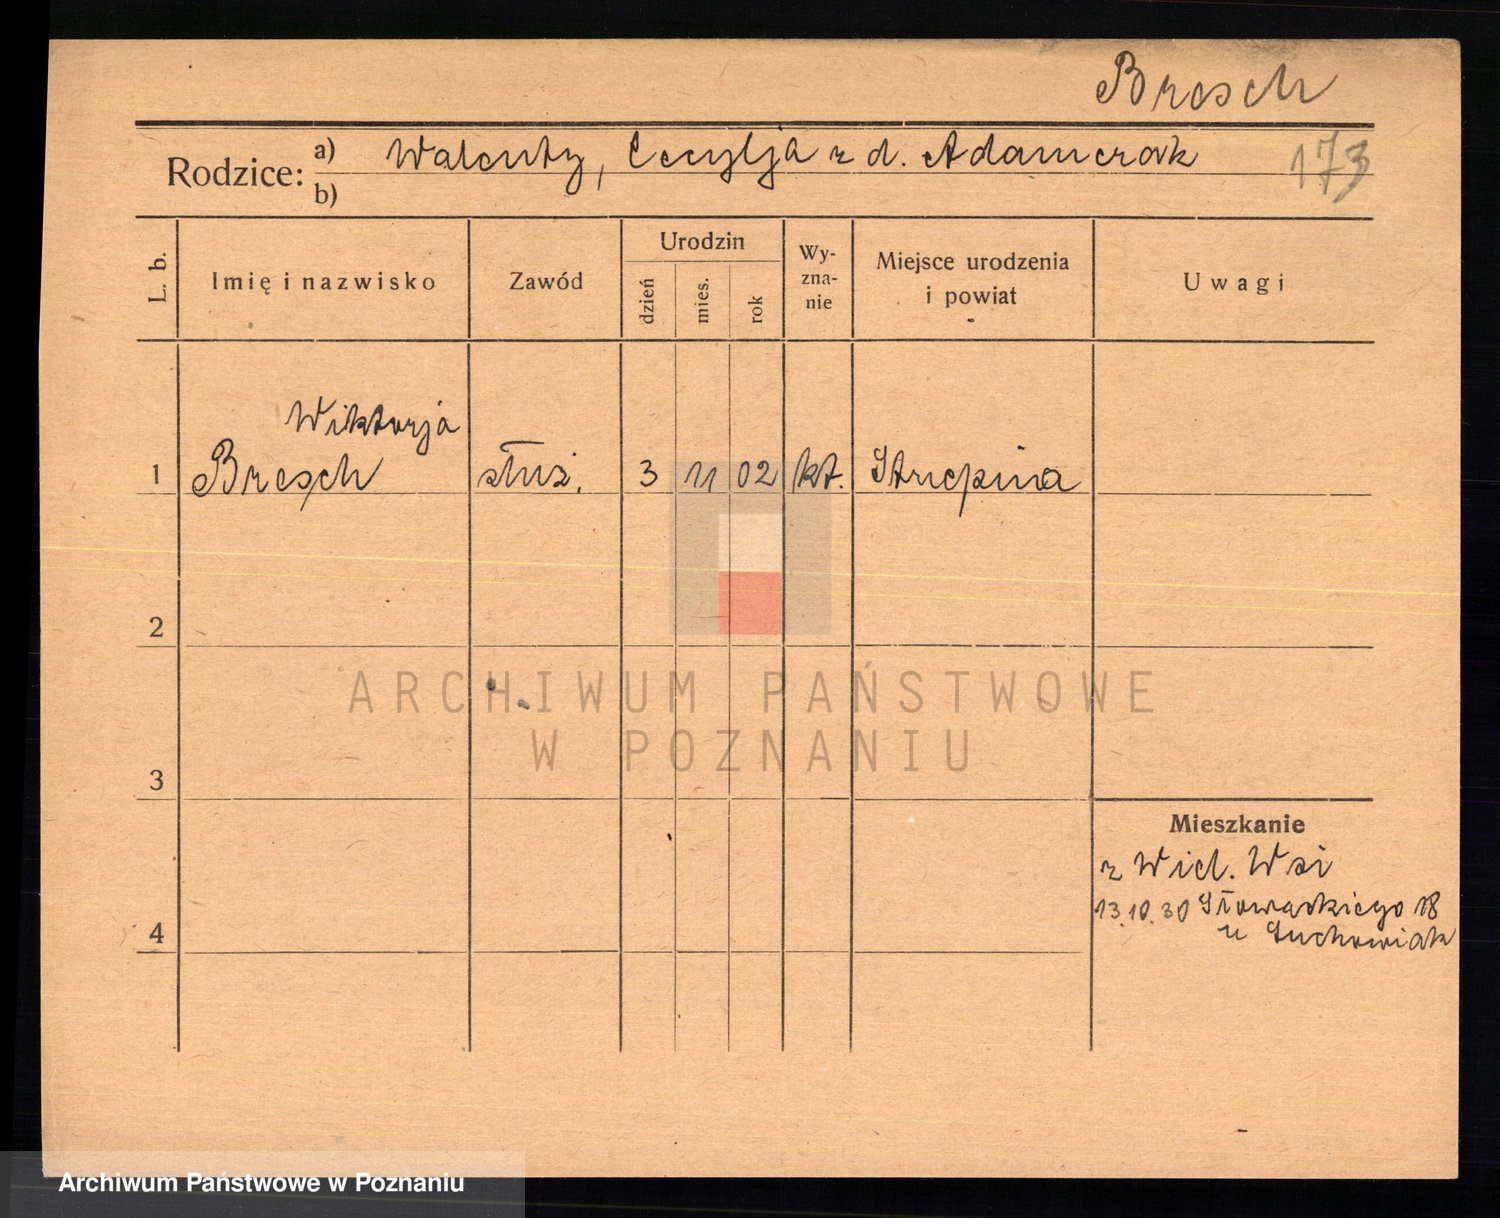 Bresch
173
Rodzice:
a) Walenty, Cecylja z d. Adamczak
b)
L. b.
Imię i nazwisko
Zawód
Urodzin
dzień
mies.
rok
Wy-
zna-
nie
Miejsce urodzenia
i powiat
Uwagi
Wiktorja
1 Bresch służ. 3 11 02 kt. Strzepina
2
3
4
Mieszkanie
z Wiel. Wsi
13.10.30 Słowackiego 18
u Suchowiak
ARCHIWUM PAŃSTWOWE
W POZNANIU
Archiwum Państwowe w Poznaniu